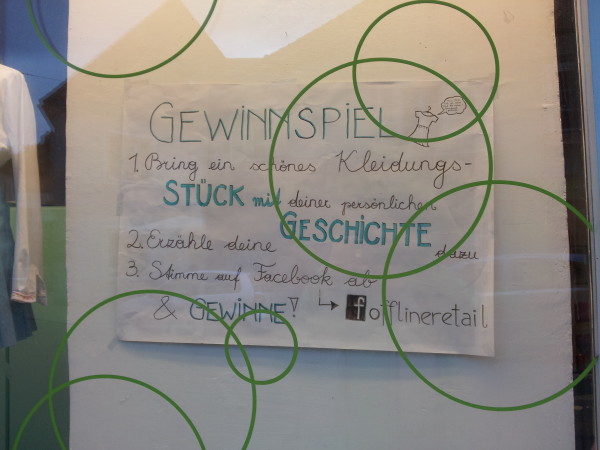 GEWINNSPIEL
1. Bring ein schönes Kleidungs-
STÜCK mit deiner persönlichen
2. Erzähle deine GESCHICHTE dazu
3. Stimme auf Facebook ab
& GEWINNE! ↳ f offlineretail